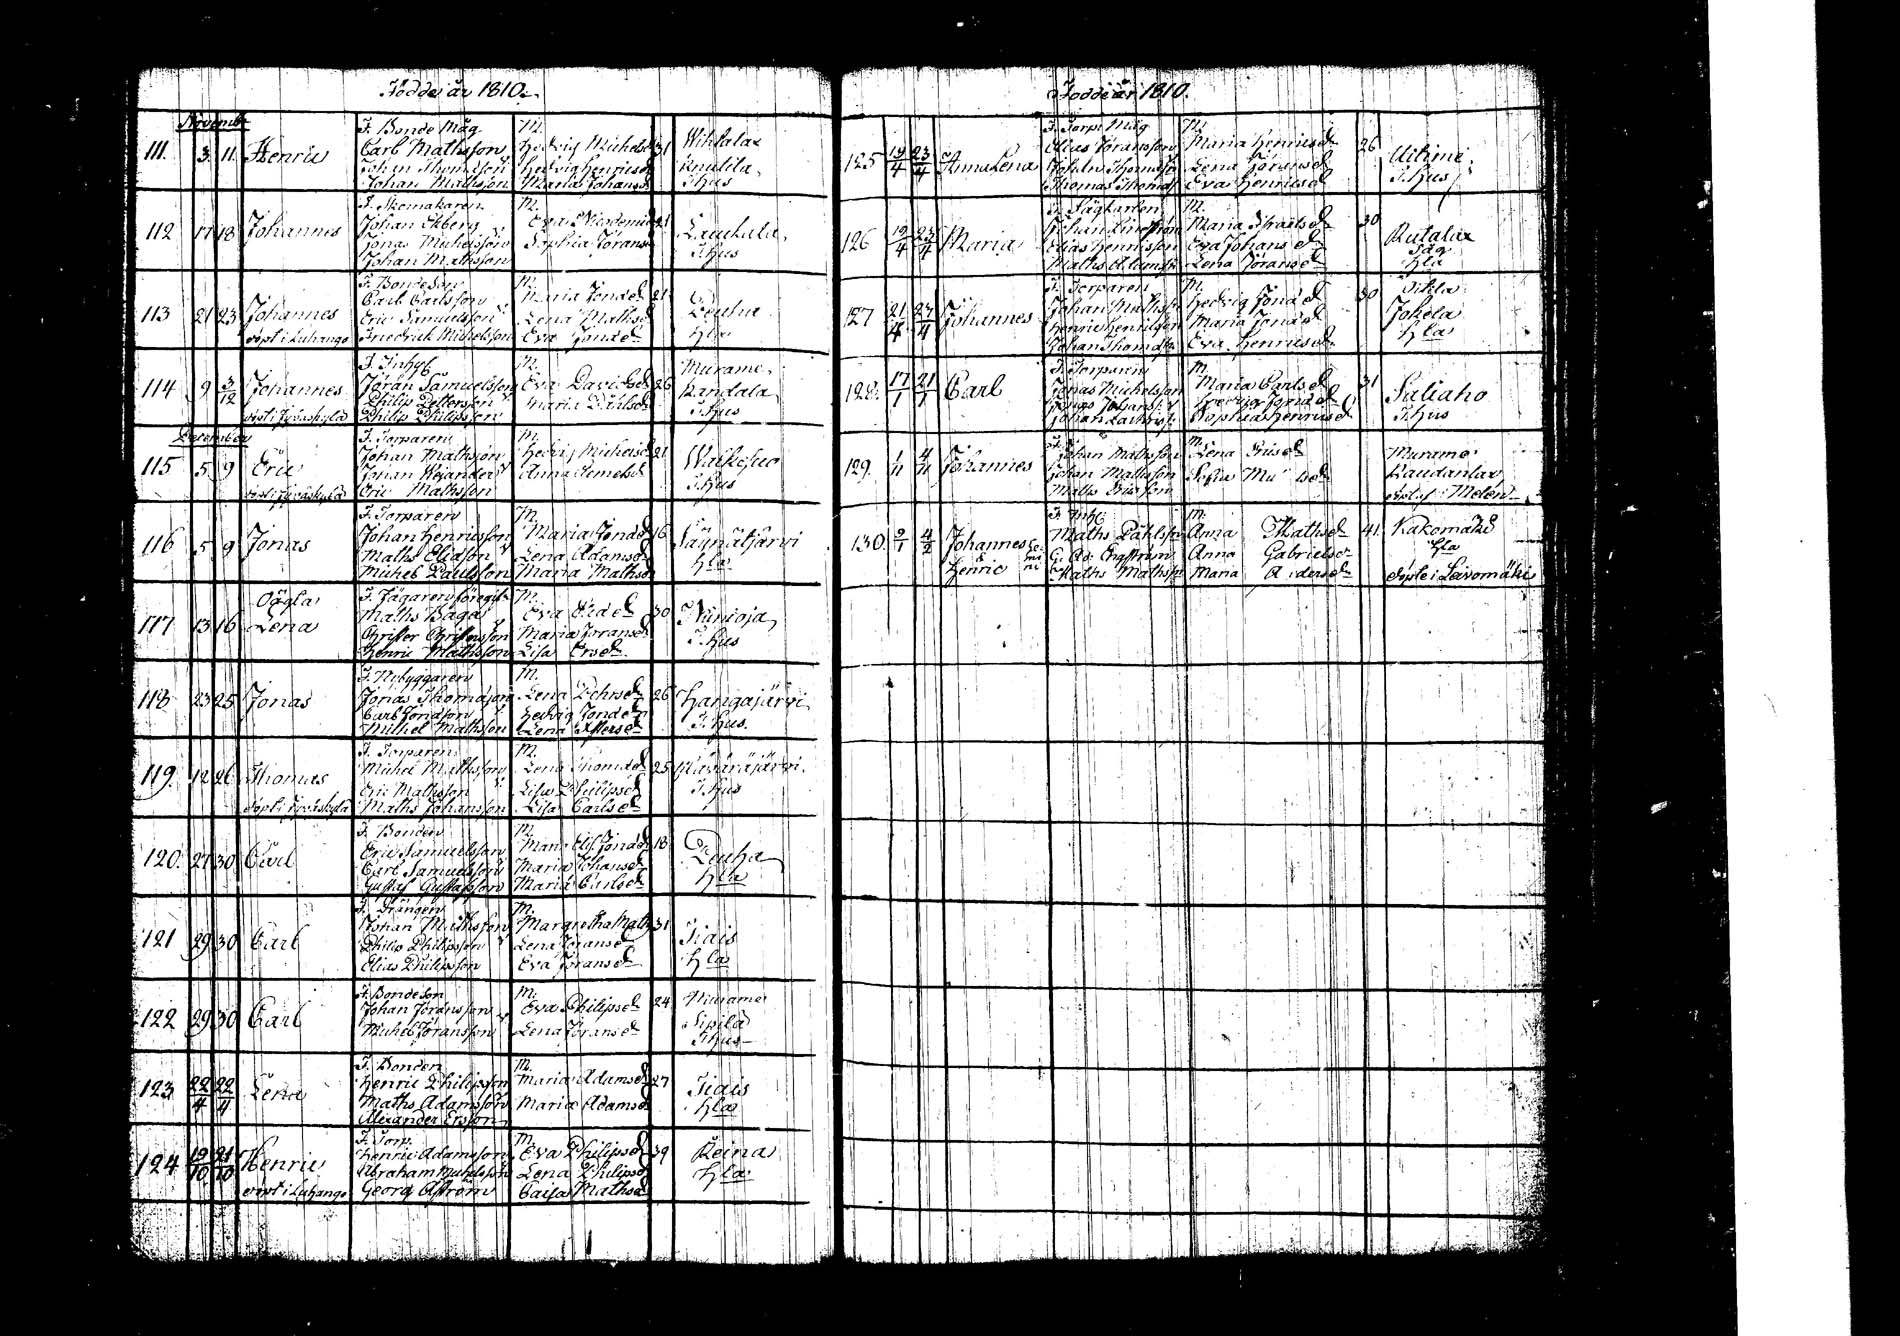 Födde år 1810.
November
111. 3 11 Henric
F. Bonde Måg
Carl Mathsson
Johan Thomasson
Johan Mathsson
M.
Hedvig Michelsd 31
Hedvig Henricsd
Maria Johansd
Wihtalax
Knutila
T. Hus
112 17 18 Johannes
F. Skomakaren
Johan Ekberg
Jonas Michelsson
Johan Mathsson
M.
Eva Nicodemi 21
Sophia Joransd
Lauhala
T. Hus
113 21 23 Johannes
döpt i Luhango
F. Bondeson
Carl Carlsson
Eric Samuelsson
Friedrich Michelsson
M.
Maria Jonæd 21
Lena Mathsd
Eva Jonæd
Leuhu
Hla
114 9 3/12 Johannes
döpt i Jyväskylä
F. Inhys
Jöran Samuelsson
Philip Pettersson
Philip Philipsson
M.
Eva Davidsd 26
Maria Påhlsd
Murame
Randala
T. Hus
December
115 5 9 Eric
döpt i Jyväskylä
F. Torparen
Johan Mathsson
Johan Wejander
Eric Mathsson
M.
Hedvig Michelsd 21
Anna Clemetsd
Walkesuo
T. Hus
116 5 9 Jonas
F. Torparen
Johan Henricsson
Maths Eliasson
Michel Paulsson
M.
Maria Jonæd 16
Lena Adamsd
Maria Mathsd
Säynätjärvi
Hla
117 13 16 Oägta
Lena
F. Jägaren föregifn
Maths Baga
Christer Christersson
Henric Mathsson
M.
Eva Eliæd 30
Maria Joransd
Lisa Ersd
Kunioja
T. Hus
118 23 25 Jonas
F. Nybyggaren
Jonas Thomasson
Carl Jonasson
Michel Mathsson
M.
Lena Pehrsd 26
Hedvig Jonæd
Lena
Hangajärvi
T. Hus.
119. 12 26 Thomas
döpt i Jyväskylä
F. Torparen
Michel Mathsson
Eric Mathsson
Maths Johansson
M.
Lena Thomæd 25
Lisa Philipsd
Lisa Carlsd
T. Hus
120. 27 30 Carl
F. Bonden
Eric Samuelsson
Carl Samuelsson
Gustaf Gustafsson
M.
Maria Elis Jonæd 18
Maria Johansd
Maria Carlsd
Leuhu
Hla
121 29 30 Carl
F. Drängen
Johan Mathsson
Philip Philipsson
Elias Philipsson
M.
Margretha Maths 31
Lena Joransd
Eva Joransd
Tiais
Hla
122 29 30 Carl
F. Bondeson
Johan Joransson
Michel Joransson
M.
Eva Philipsd 24
Lena Joransd
Murame
Sipilä
T. Hus
123 22/4 22/4 Lena
F. Bonden
Henric Philipsson
Maths Adamsson
Alexander Ersson
M.
Maria Adamsd 27
Maria Adamsd
Tiais
Hla
124 19/10 21/10 Henric
döpt i Luhango
F. Torp.
Henric Adamsson
Abraham Michelsson
Georg Åström
M.
Eva Philipsd 39
Lena Philipsd
Caisa Mathsd
Reina
Hla
Födde år 1810.
125 19/4 23/4 Anna Lena
F. Torp. Måg
Elias Joransson
Johan Thomass
Thomas Thomass
M.
Maria Henricsd 26
Lena Joransd
Eva Henricsd
Uitimi
T. Hus
126 19/4 23/4 Maria
F. Sågkarlen
Johan Lindström
Elias Henricsson
Maths Adamss
M.
Maria Israelsd 30
Eva Johansd
Lena Joransd
Rutalax
Såg
Hla
127 21/4 27/4 Johannes
F. Torparen
Johan Mathss
Henric Henricsson
Johan Thomass
M.
Hedvig Jonæd 30
Maria Jonæd
Eva Henricsd
Oitila
Jokela
Hla
128. 17/1 21/1 Carl
F. Torparen
Jonas Michelsson
Johan Zachriss
M.
Maria Carlsd 31
Hedvig Jonæd
Sophia Henricsd
Suliaho
T. Hus
129. 1/11 4/11 Johannes
F.
Johan Mathsson
Johan Mathsson
Maths Ericsson
M.
Lena Ericsd
Sofia
Murame
130. 2/1 4/2 Johannes
&
Henric Gemini
F. Inh:
Maths Påhlsson
G. Ad. Engström
Maths Mathsson
M.
Anna Mathsd 41.
Anna Gabrielsd
Maria Andersd
Kakomäki
Hla
döpte i Leivomäki